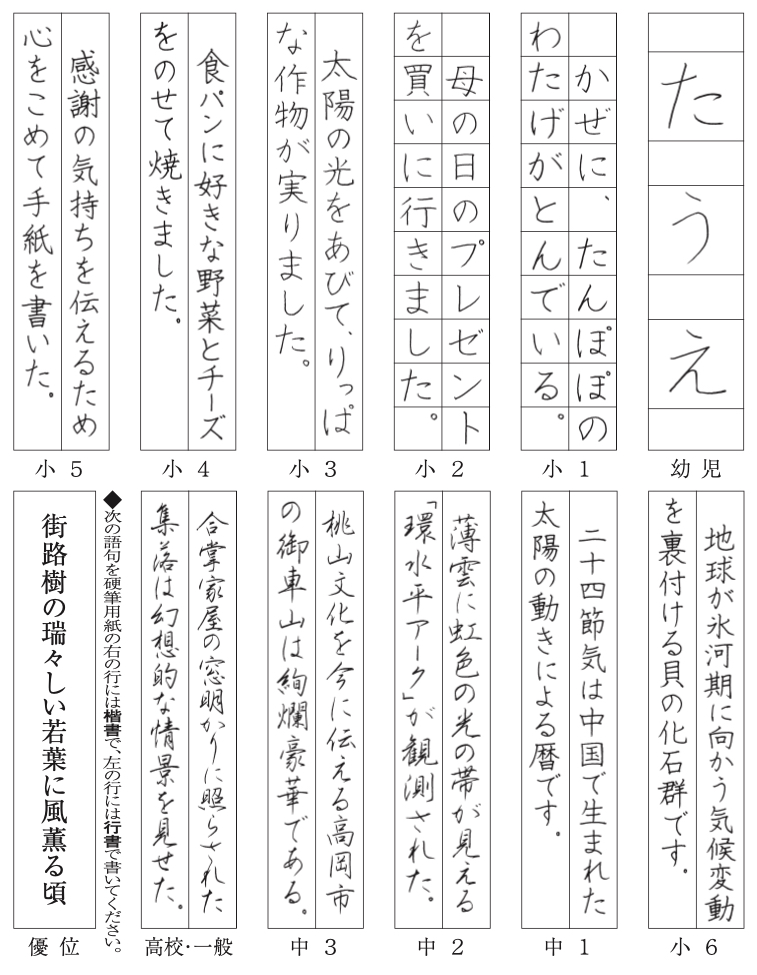 たうえ
幼児
かぜに、たんぽぽの
わたげがとんでいる。
小1
母の日のプレゼント
を買いに行きました。
小2
太陽の光をあびて、りっぱ
な作物が実りました。
小3
食パンに好きな野菜とチーズ
をのせて焼きました。
小4
感謝の気持ちを伝えるため
心をこめて手紙を書いた。
小5
地球が氷河期に向かう気候変動
を裏付ける貝の化石群です。
小6
二十四節気は中国で生まれた
太陽の動きによる暦です。
中1
薄雲に虹色の光の帯が見える
「環水平アーク」が観測された。
中2
桃山文化を今に伝える高岡市
の御車山は絢爛豪華である。
中3
合掌家屋の窓明かりに照らされた
集落は幻想的な情景を見せた。
高校・一般
◆次の語句を硬筆用紙の右の行には楷書で、左の行には行書で書いてください。
街路樹の瑞々しい若葉に風薫る頃
優位